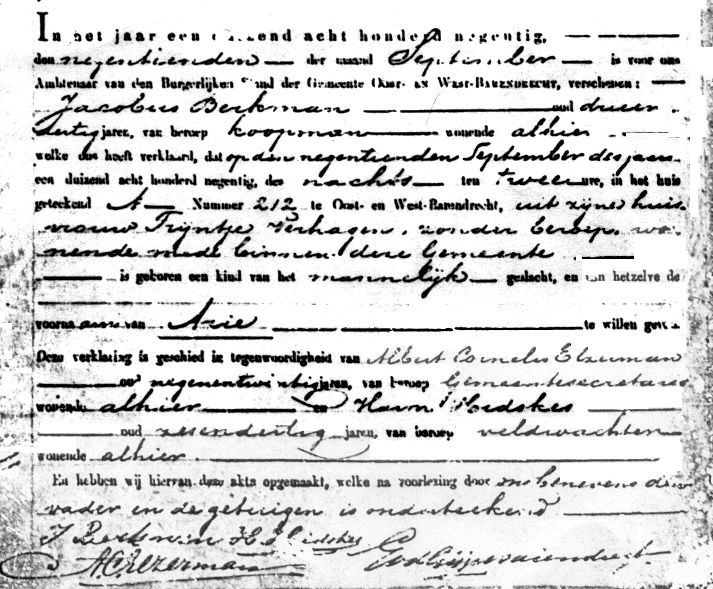 In het jaar een duizend acht honderd negentig,
den negentienden der maand September is voor ons
Ambtenaar van den Burgerlijken Stand der Gemeente Oost- en West-Barendrecht, verschenen:
Jacobus Berkman oud drieen
dertig jaren, van beroep koopman wonende alhier
welke ons heeft verklaard, dat op den negentienden September des jaars
een duizend acht honderd negentig, des nachts ten twee ure, in het huis
geteekend A Nummer 212 te Oost- en West-Barendrecht, uit zijne huis
vrouw Trijntje Verhagen, zonder beroep, wo
nende mede binnen deze Gemeente
is geboren een kind van het mannelijk geslacht, en aan hetzelve de
voornaam van Arie te willen geven.
Deze verklaring is geschied in tegenwoordigheid van Albert Cornelis Elzerman
oud negenentwintig jaren, van beroep Gemeentesecretaris
wonende alhier en Harm Hidskes
oud zesendertig jaren, van beroep veldwachter
wonende alhier.
En hebben wij hiervan deze akte opgemaakt, welke na voorlezing door ons benevens den
vader en de getuigen is onderteekend
J Berkman H. Hidskes
AC Elzerman